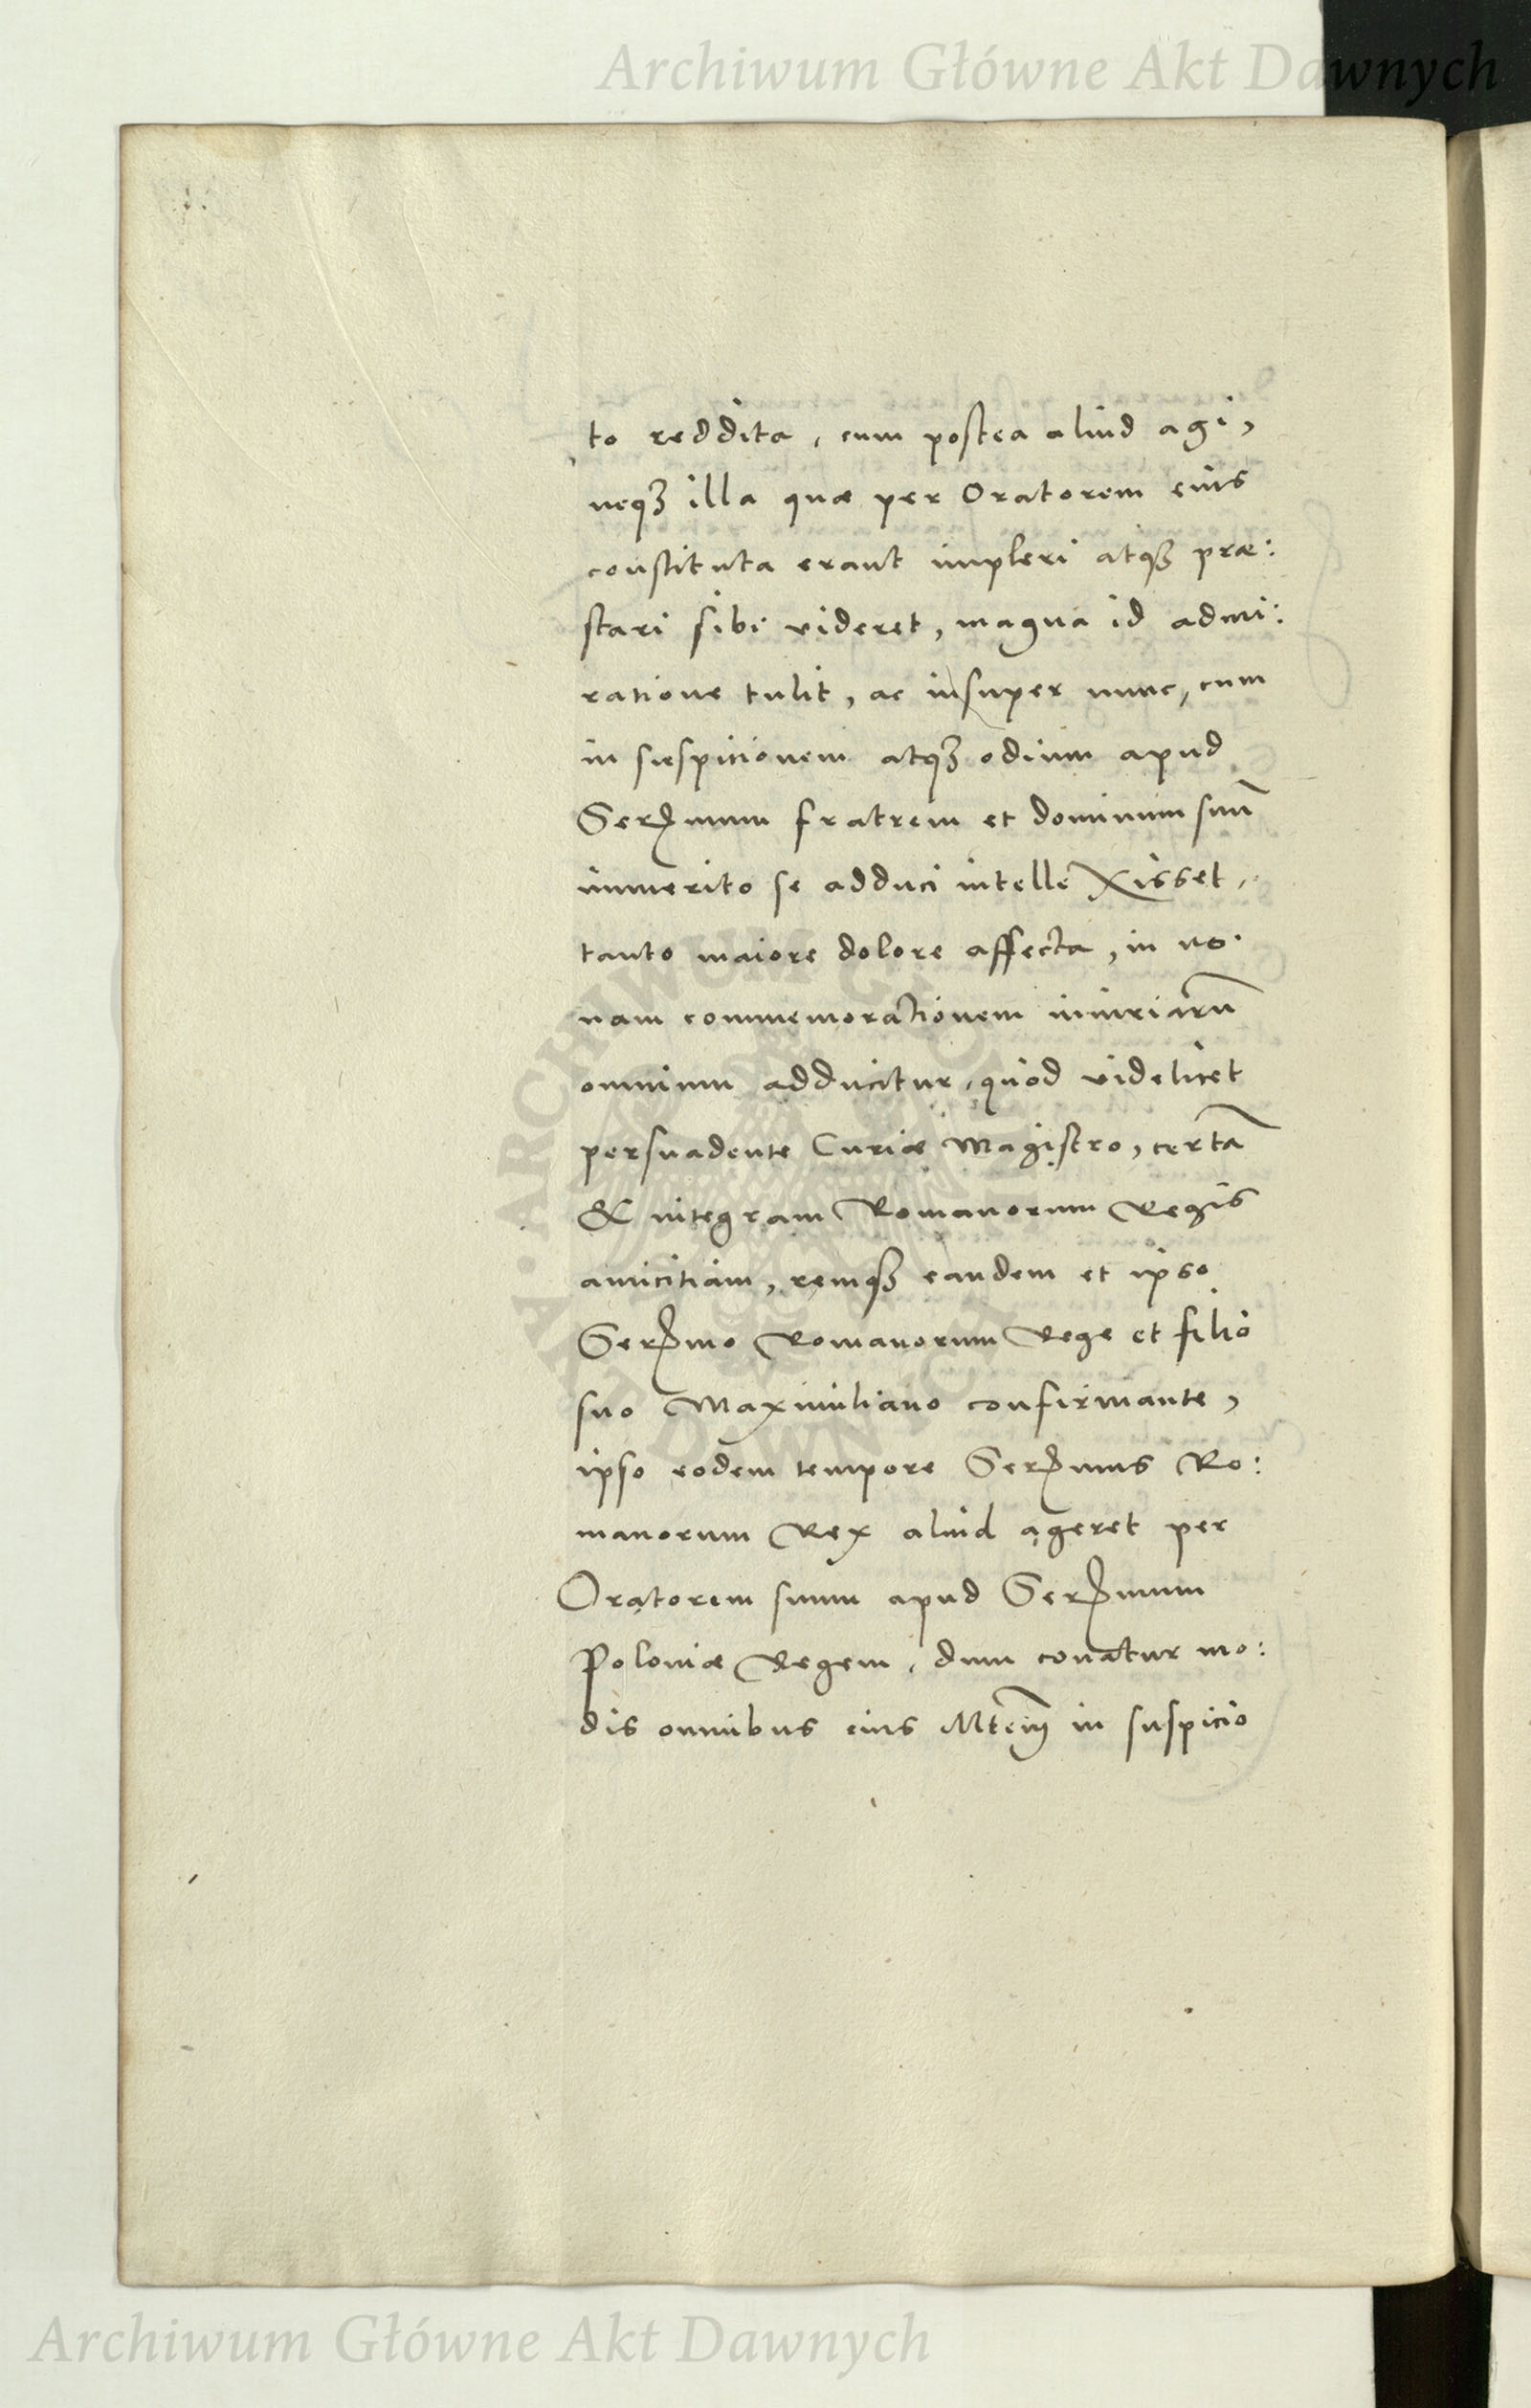 Archiwum Główne Akt Dawnych
to reddita, cum postea aliud agi,
neqꝫ illa quæ per Oratorem eius
constituta erant impleri atqꝫ præ:
stari sibi videret, magna id admi:
ratione tulit, ac insuper nunc, cum
in suspicionem atqꝫ odium apud
Serꝰmum fratrem et dominum suū
immerito se adduci intellexisset,
tanto maiore dolore affecta, in no.
nam commemorationem iniuriarū
omnium adducitur, quod videlicet
persuadente Curiæ Magistro, certā
& integram Romanorum Regis
amicitiam, remqꝫ eandem et ipso
Serꝰmo Romanorum Rege et filio
suo Maximiliano confirmante,
ipso eodem tempore Serꝰmus Ro:
manorum Rex aliud ageret per
Oratorem suum apud Serꝰmum
Poloniæ Regem, dum conatur mo:
dis omnibus eius Mtem in suspicio
ARCHIWUM
DAWNYCH
Archiwum Główne Akt Dawnych